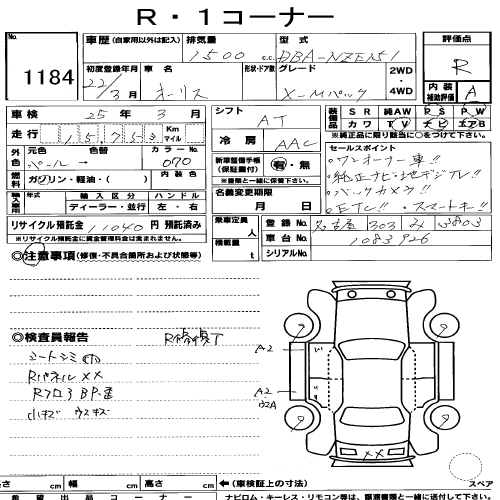 R・1コーナー
No.
1184
車歴 (自家用以外は記入)
排気量
1500 c.c.
型式
DBA-NZE151
評価点
R
初度登録年月
22/3月
車名
オーリス
形状・ドア数
グレード
X-Mパック
2WD
4WD
内装
補助評価
A
車検
25年 3月
シフト
AT
装備品
SR 純AW PS PW
カワ TV ナビ エアB
※純正品に限り該当に○をつけて下さい。
走行
15,753
Km
マイル
冷房
AAC
セールスポイント
・ワンオーナー車!!
・純正ナビ・地デジTV!!
・バックカメラ!!
・ETC!! ・スマートキー!!
外色
元色
パール→
色替
カラーNo.
070
内装色
燃料
ガソリン・軽油・( )
新車整備手帳
(保証書付)
有・無
※書類と一緒に保管下さい。
輸入車
年式
輸入区分
ディーラー・並行
ハンドル
左・右
名義変更期限
月 日
リサイクル預託金
11040円 預託済み
※リサイクル預託金に資金管理料金は含まれません。
乗車定員
人
積載量
t
登録No.
名古屋 303 み 3803
車台No.
1083926
シリアルNo.
◎注意事項 (修復・不具合箇所および状態等)
◎検査員報告
R修復丁
シートシミ 内
Rパネル XX
小キズ ウスキズ
A2
A2
XX
スペア
さ cm 幅 cm 高さ cm
←(車検証上の寸法)
希望出品コーナー
ナビロム・キーレス・リモコン等は、譲渡書類と一緒に送付して下さい。